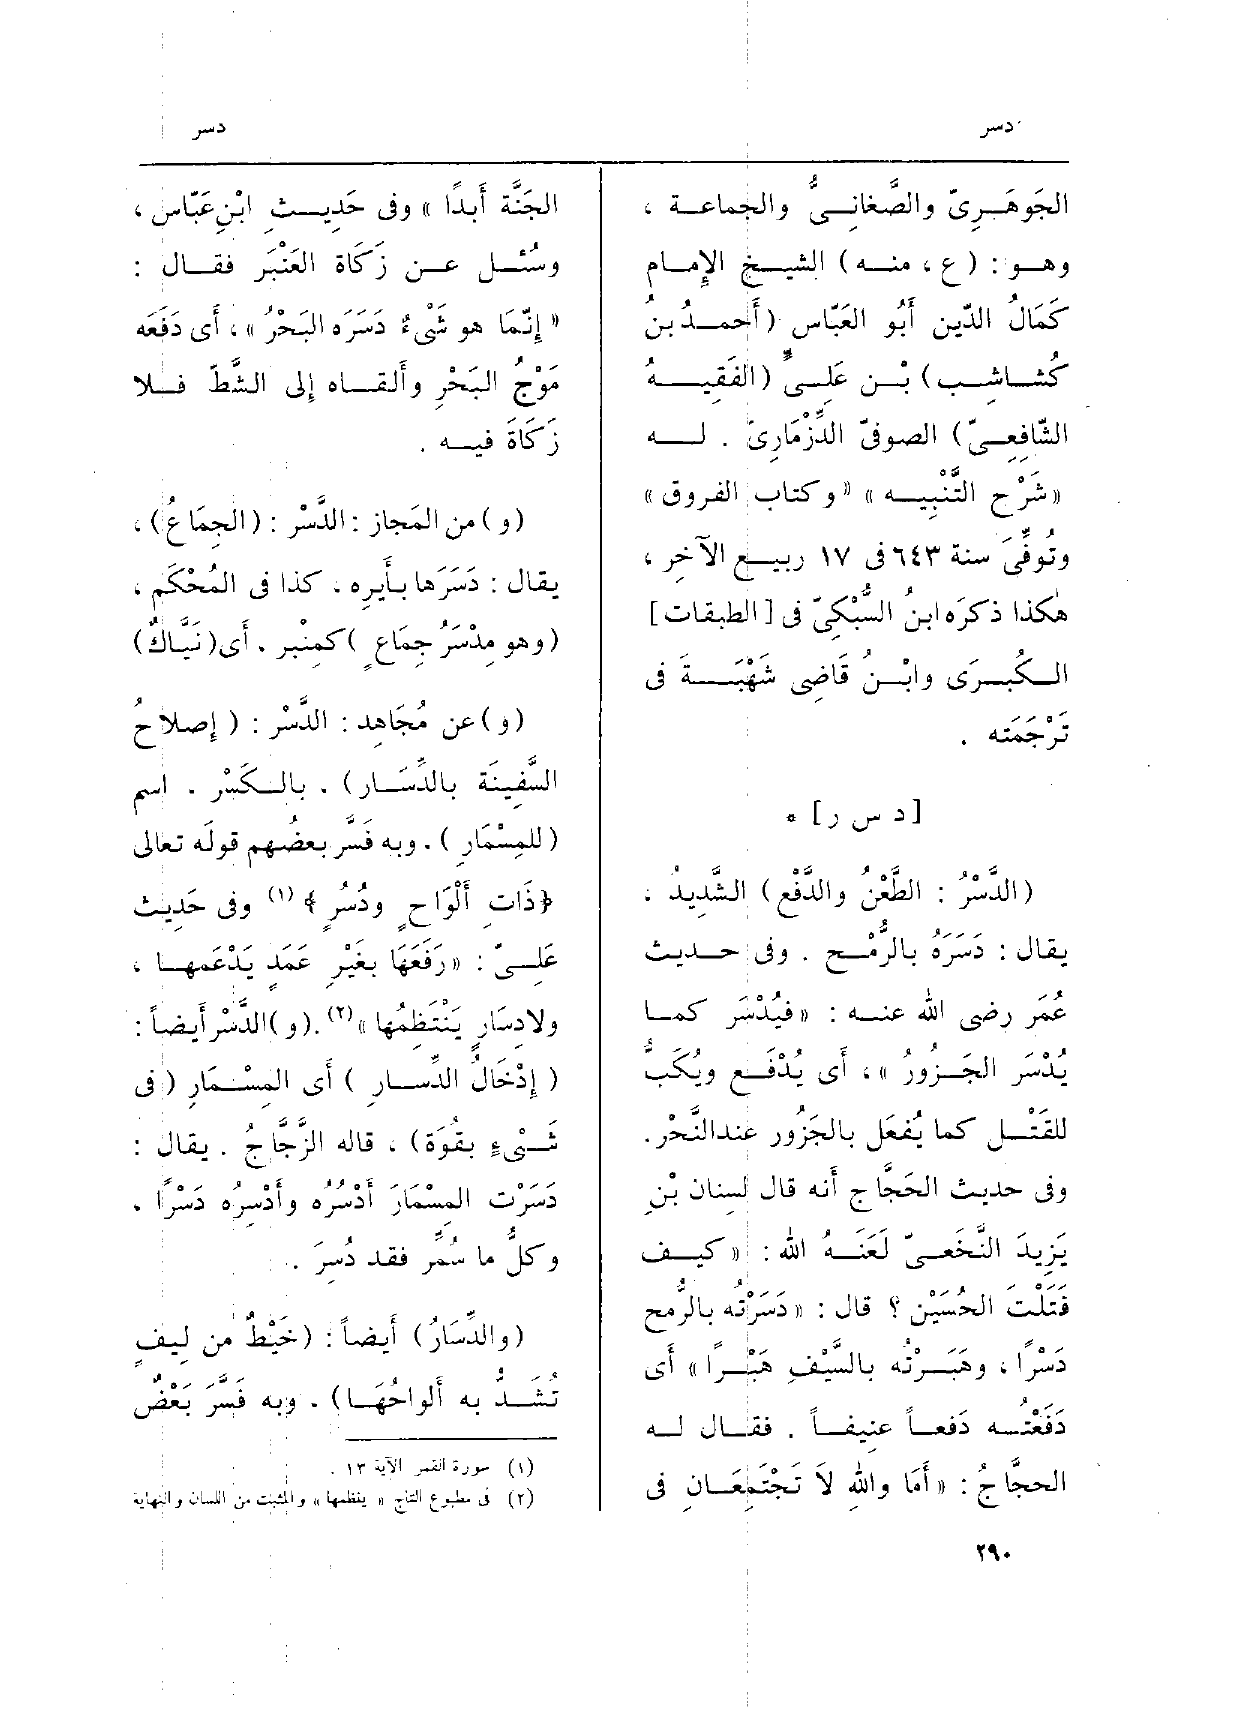 دسر
دسر
الجَوهَرِىّ والصَّغانِىُّ والجماعة ،
وهو : (ع ، منه) الشيخ الإمام
كَمَالُ الدّين أَبُو العَبّاس (أَحمدُ بن
كُشَاشِب) بْن عَلِىٍّ (الفَقِيهُ
الشّافِعِىّ) الصوفىّ الدِّزْمَارِىّ . له
«شَرْح التَّنْبِيه» «وكتاب الفروق»
وتُوفِّىَ سنة ٦٤٣ فى ١٧ ربيع الآخِر ،
هٰكذا ذكرَه ابنُ السُّبْكِىّ فى [الطبقات]
الكُبرَى وابْنُ قَاضِى شَهْبَةَ فى
تَرْجَمَته .
[د س ر] *
(الدَّسْرُ : الطَّعْنُ والدَّفْعُ) الشَّدِيدُ ،
يقال : دَسَرَهُ بالرُّمْح . وفى حديث
عُمَر رضى الله عنه : «فيُدْسَر كما
يُدْسَر الجَزورُ » ، أَى يُدْفَع ويُكَبُّ
للقَتْل كما يُفعَل بالجَزُور عندالنَّحْر.
وفى حديث الحَجّاج أَنه قال لسنان بْنِ
يَزِيدَ النَّخَعىّ لَعَنَهُ الله : «كيف
قَتَلْتَ الحُسَيْن ؟ قال : «دَسَرْته بالرُّمح
دَسْرًا ، وهَبَرْته بالسَّيْفِ هَبْرًا» أَى
دَفَعْته دَفعاً عنيفاً . فقال له
الحجّاجُ : «أَمَا واللهِ لاَ تَجْتَمعَان فى
الجَنَّة أَبدًا » وفى حَدِيث ابْنِ عَبّاس ،
وسُئل عن زَكَاة العَنْبَر فقال :
«إِنّمَا هو شَىْءٌ دَسَرَه البَحْرُ » ، أَى دَفَعَه
مَوْجُ البَحْرِ وأَلقاه إِلى الشَّطّ فلا
زَكَاةَ فيه .
(و) من المَجاز : الدَّسْر : (الجِمَاعُ) ،
يقال : دَسَرَها بأَيره ، كذا فى المُحْكَم ،
(وهو مِدْسَرُ جِمَاعٍ )كمِنْبر ، أَى(نَيَّاكٌ)
(و) عن مُجَاهِد : الدَّسْر : ( إِصلاحُ
السَّفِينَة بالدِّسَار) ، بالكَسْر ، اسم
(للمِسْمَار) . وبه فَسَّر بعضُهم قولَه تعالى
﴿ذَاتِ أَلْوَاحٍ ودُسُرٍ﴾ (١) وفى حَدِيث
عَلِىّ : «رَفَعَهَا بغَيْرِ عَمَدٍ يَدْعَمها ،
ولادِسَارٍ يَنْتَظِمُها »(٢) .(و)الدَّسْرأَيضاً :
( إِدْخَالُ الدِّسار ) أَى المِسْمَار (فى
شَىْءٍ بقُوّة) ، قاله الزَّجّاجُ . يقال :
دَسَرْت المِسْمَارَ أَدْسُرُه وأَدْسِرُه دَسْرًا .
وكلُّ ما سُمِّرَ فقد دُسِرَ .
(والدِّسَارُ) أَيضاً : (خَيْطٌ من لِيفٍ
تُشَدُّ به أَلواحُهَا) . وبه فَسَّرَ بَعْضٌ
(١) سورة القمر الآية ١٣ .
(٢) فى مطبوع التاج « ينظمها » والمثبت من اللسان والنهاية
٢٩٠